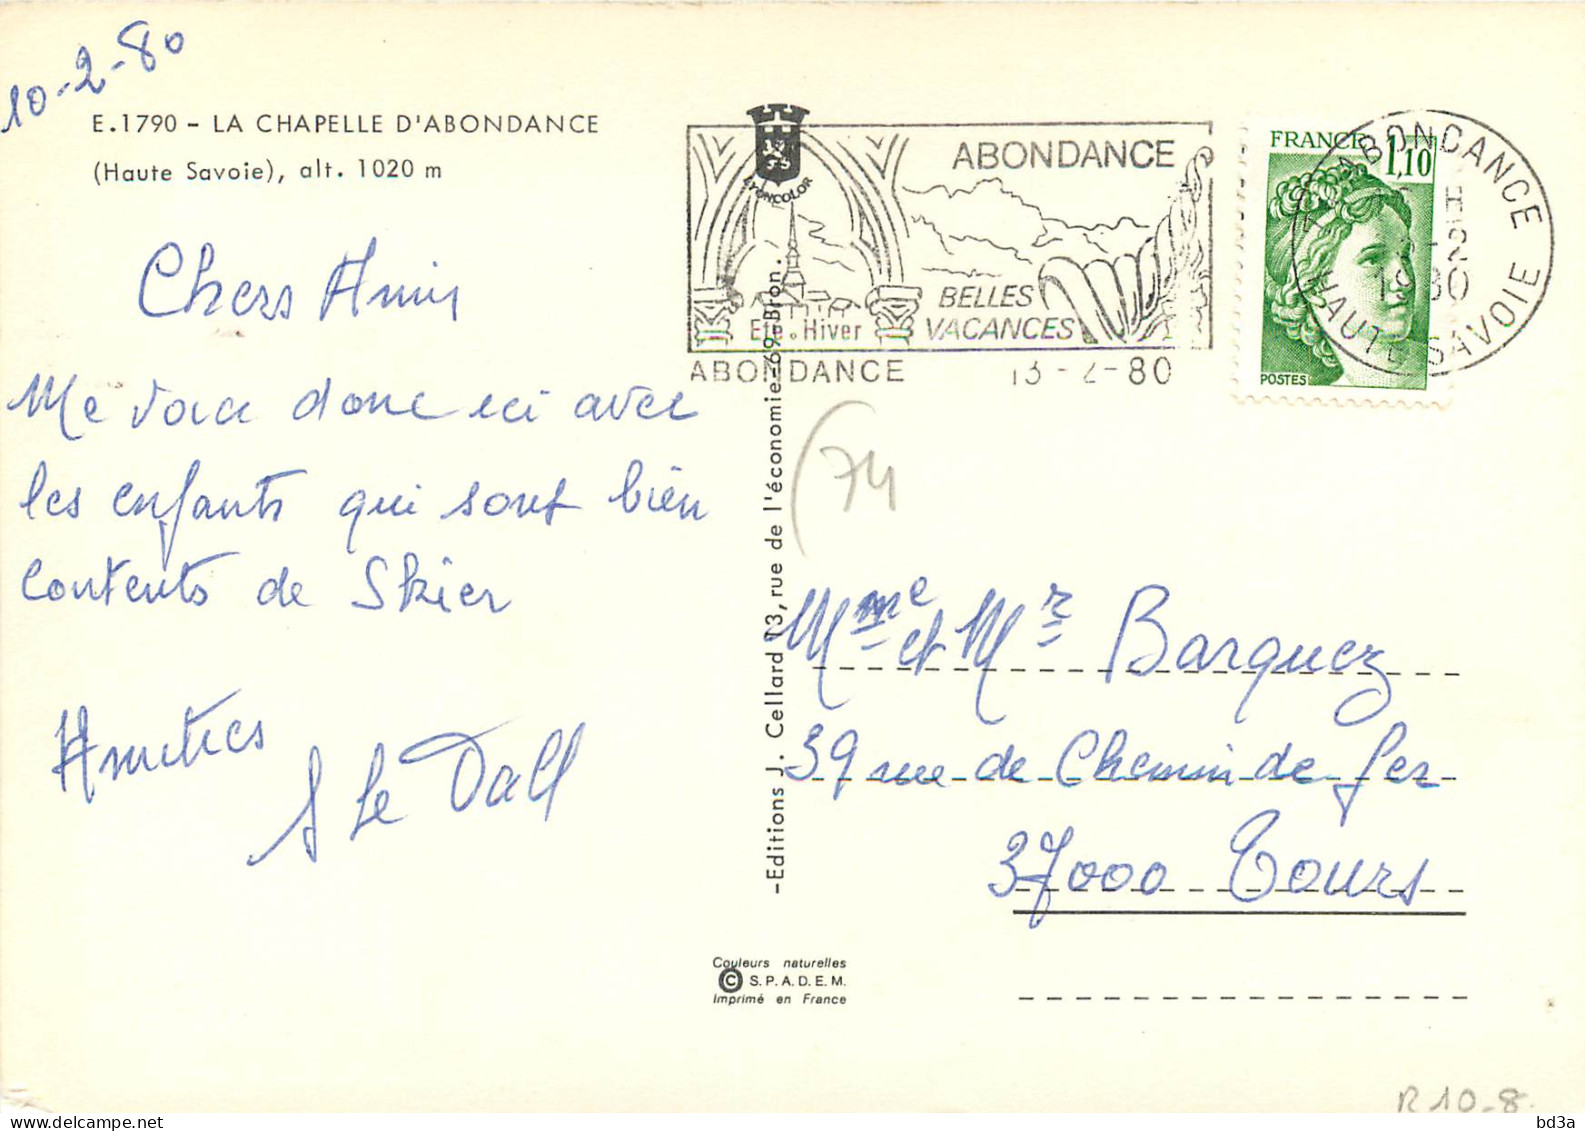 10-2-80
E.1790 - LA CHAPELLE D'ABONDANCE
(Haute Savoie), alt. 1020 m
Chers Amis
Me voici donc ici avec
les enfants qui sont bien
contents de Skier
Amitiés
LYONCOLOR
ABONDANCE
BELLES
VACANCES
Eté. Hiver
ABONDANCE 13-2-80
FRANCE 1,10
POSTES
ABONDANCE
HAUTE SAVOIE
(74
-Editions J. Cellard 13, rue de l'économie-69-Bron.
Mme et Mr Barquez
39 rue de Chemin de fer
37000 Tours
Couleurs naturelles
© S.P.A.D.E.M.
Imprimé en France
R 10-8
bd3a